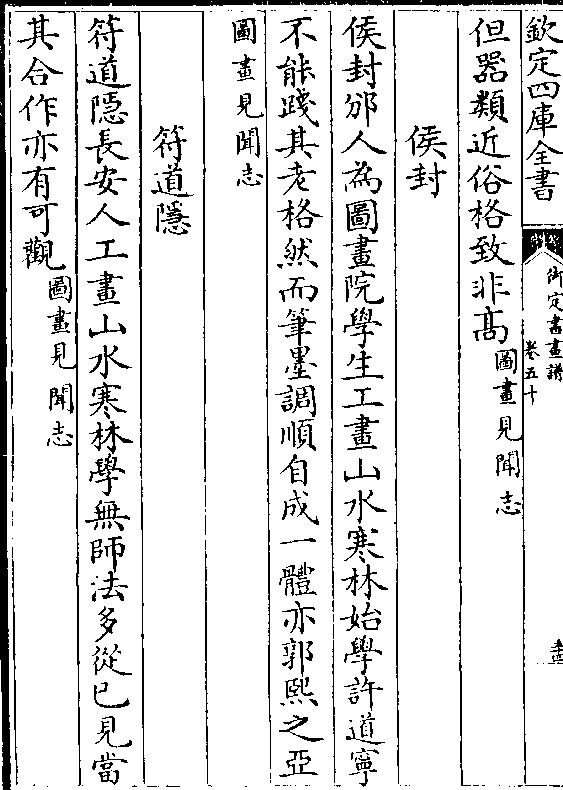 欽定四庫全書
御定書畫譜
卷五十
但器類近俗格致非高圖畫見聞志
侯封
侯封邠人為圖畫院學生工畫山水寒林始學許道寧
不能踐其老格然而筆墨調順自成一體亦郭熙之亞
圖畫見聞志
符道隱
符道隱長安人工畫山水寒林學無師法多從已見當
其合作亦有可觀圖畫見聞志